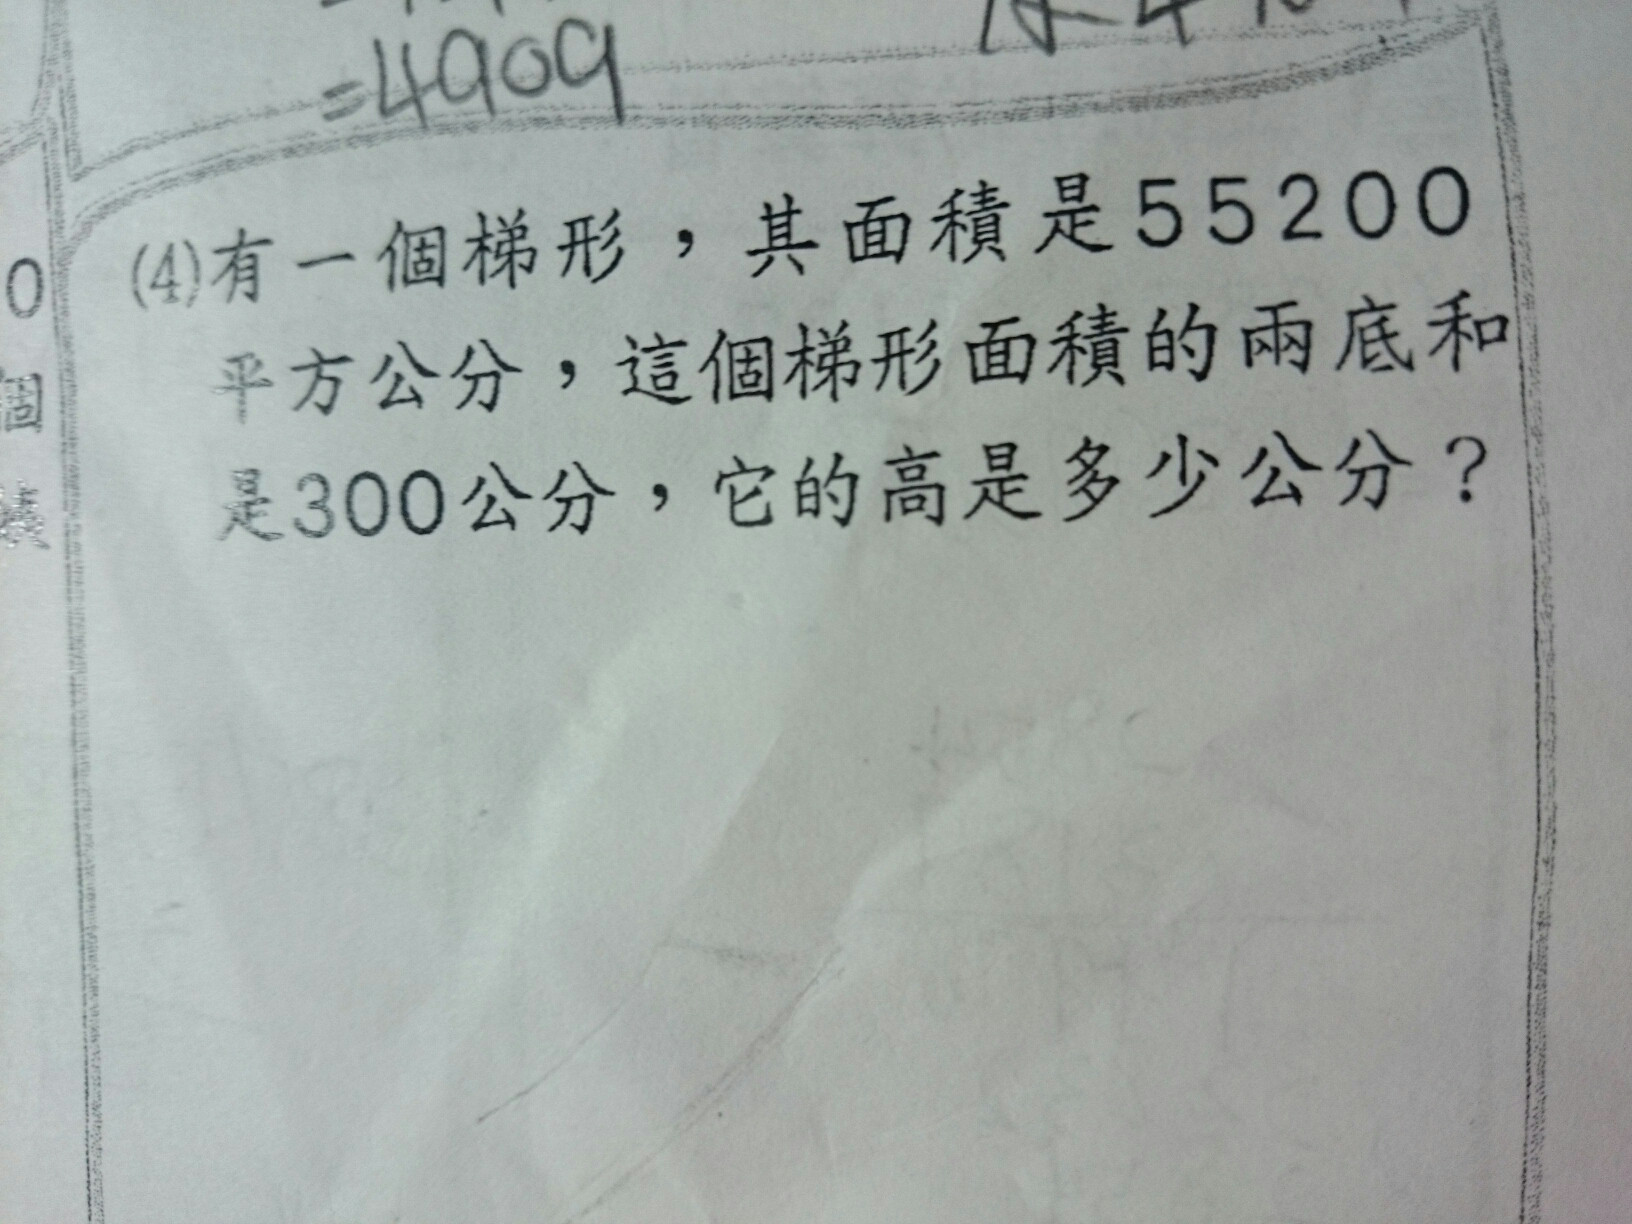 =4909
0
個
(4)有一個梯形，其面積是55200
平方公分，這個梯形面積的兩底和
是300公分，它的高是多少公分？